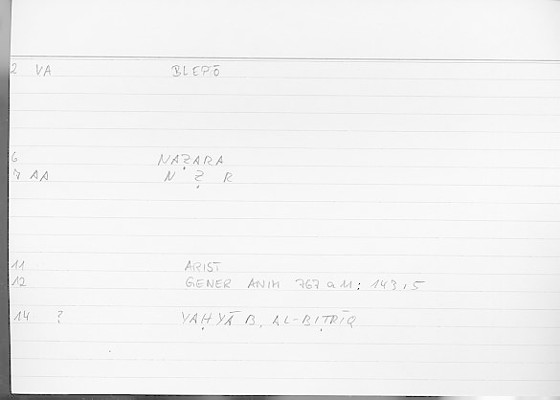 2 VA BLEPŌ
6 NAẒARA
7 AA N Ẓ R
11 ARIST
12 GENER ANIM 767 a 11 : 143,5
14 ? YAḤYĀ B. AL-BIṬRĪQ